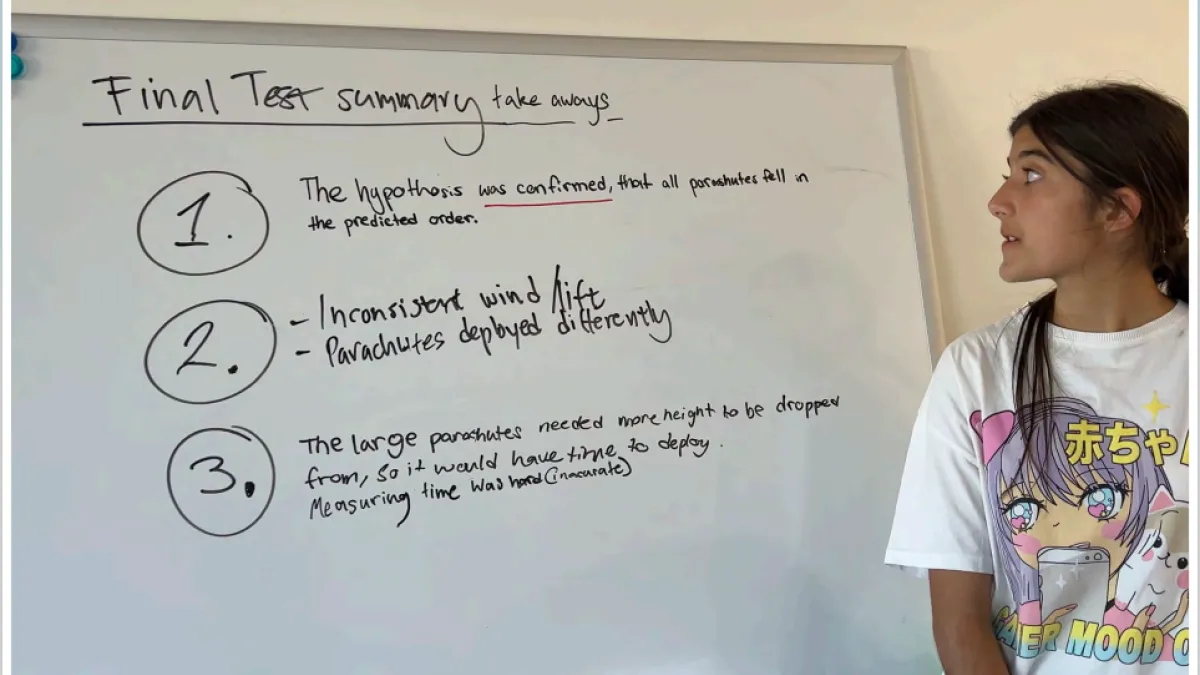 Final Test summary take aways
1.
The hypothosis was confirmed, that all parashutes fell in
the predicted order.
2.
- Inconsistent wind/lift
- Parachutes deployed differently
3.
The large parashutes needed more height to be dropped
from, so it would have time to deploy.
Measuring time was hard (inacurate)
赤ちゃん
GAMER MOOD O